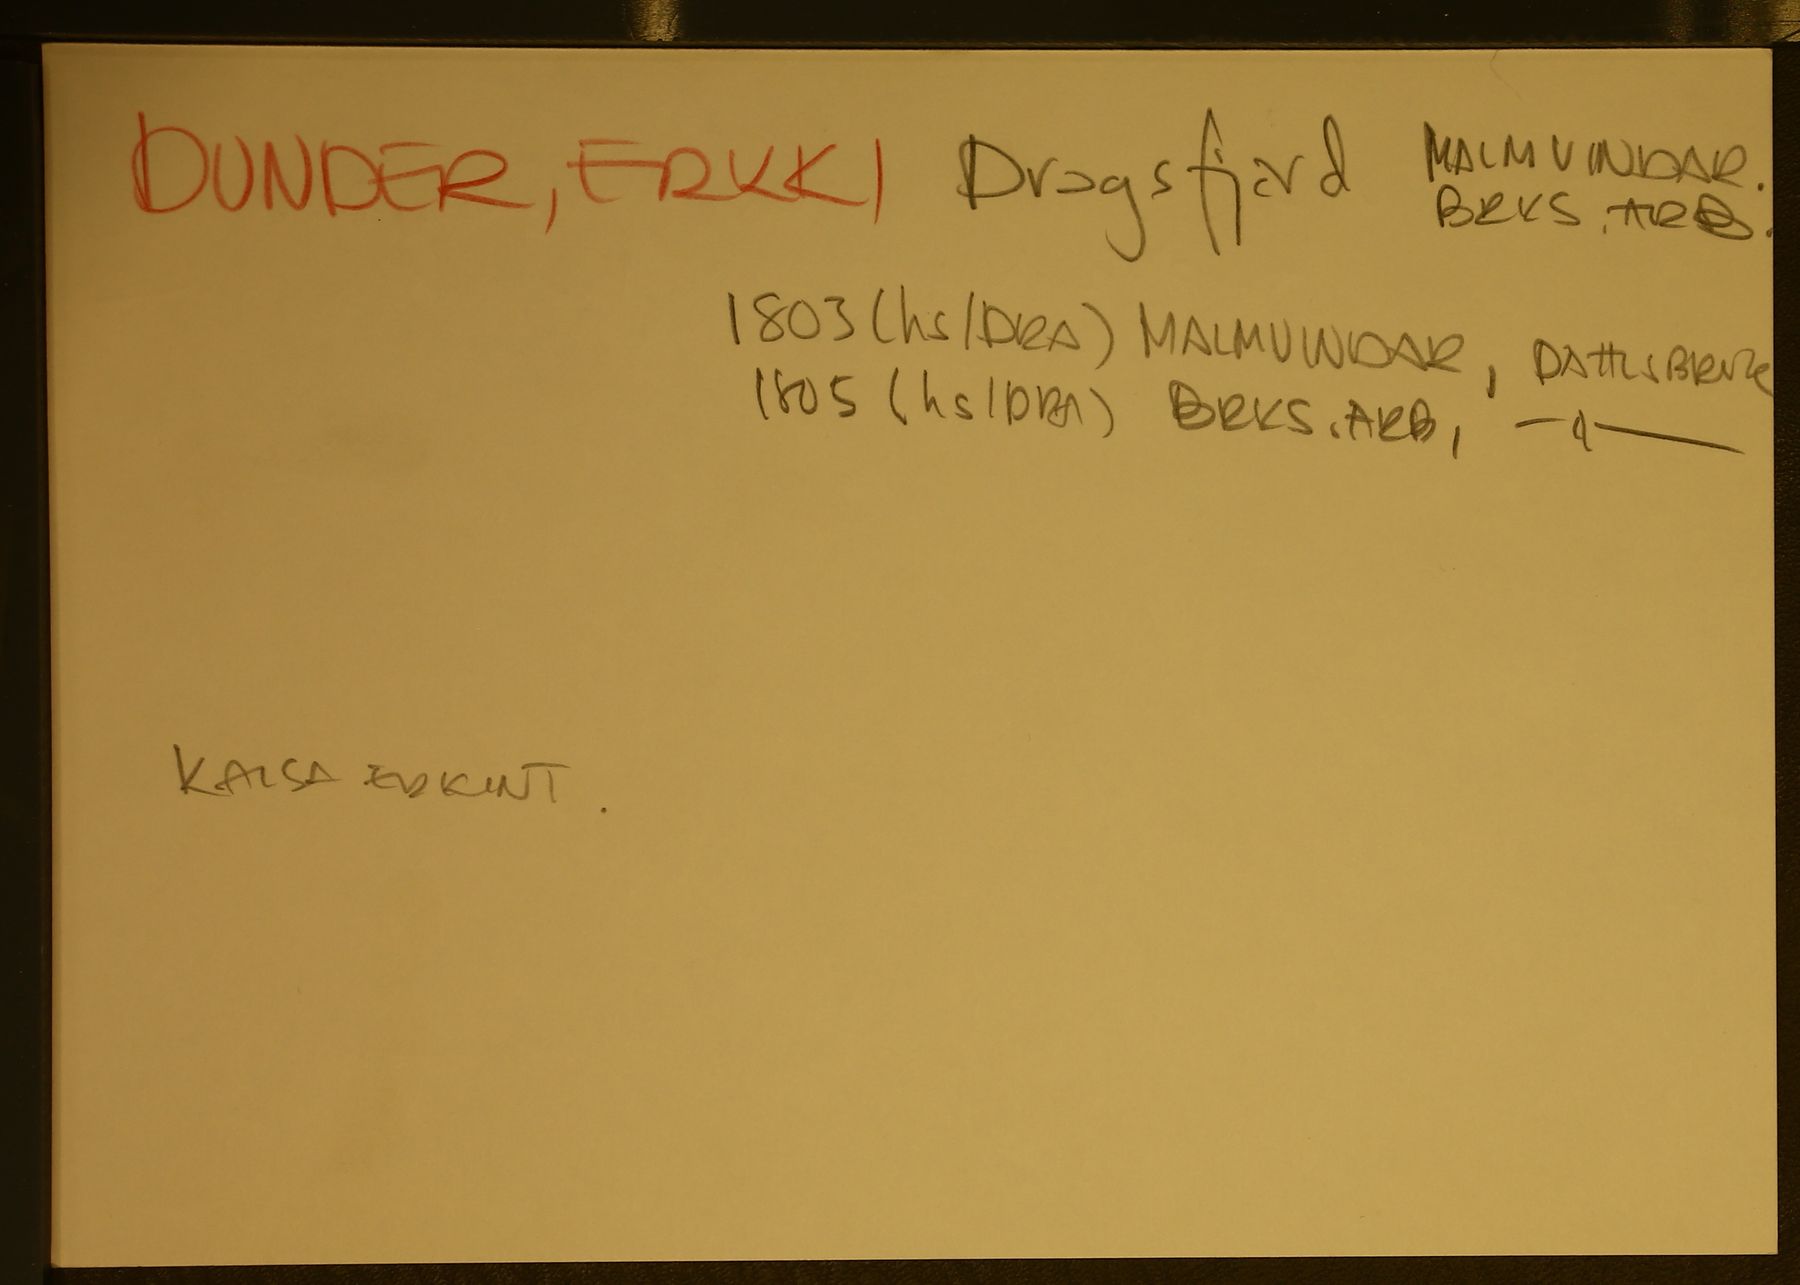 DUNDER, ERKKI Dragsfjärd MALMUINDAR.
BRKS.ARB.
1803 (hs/DRA) MALMUINDAR, DAHLSBRUK
1805 (hs/DRA) BRKS.ARB, —"—
KAISA ERKINT.